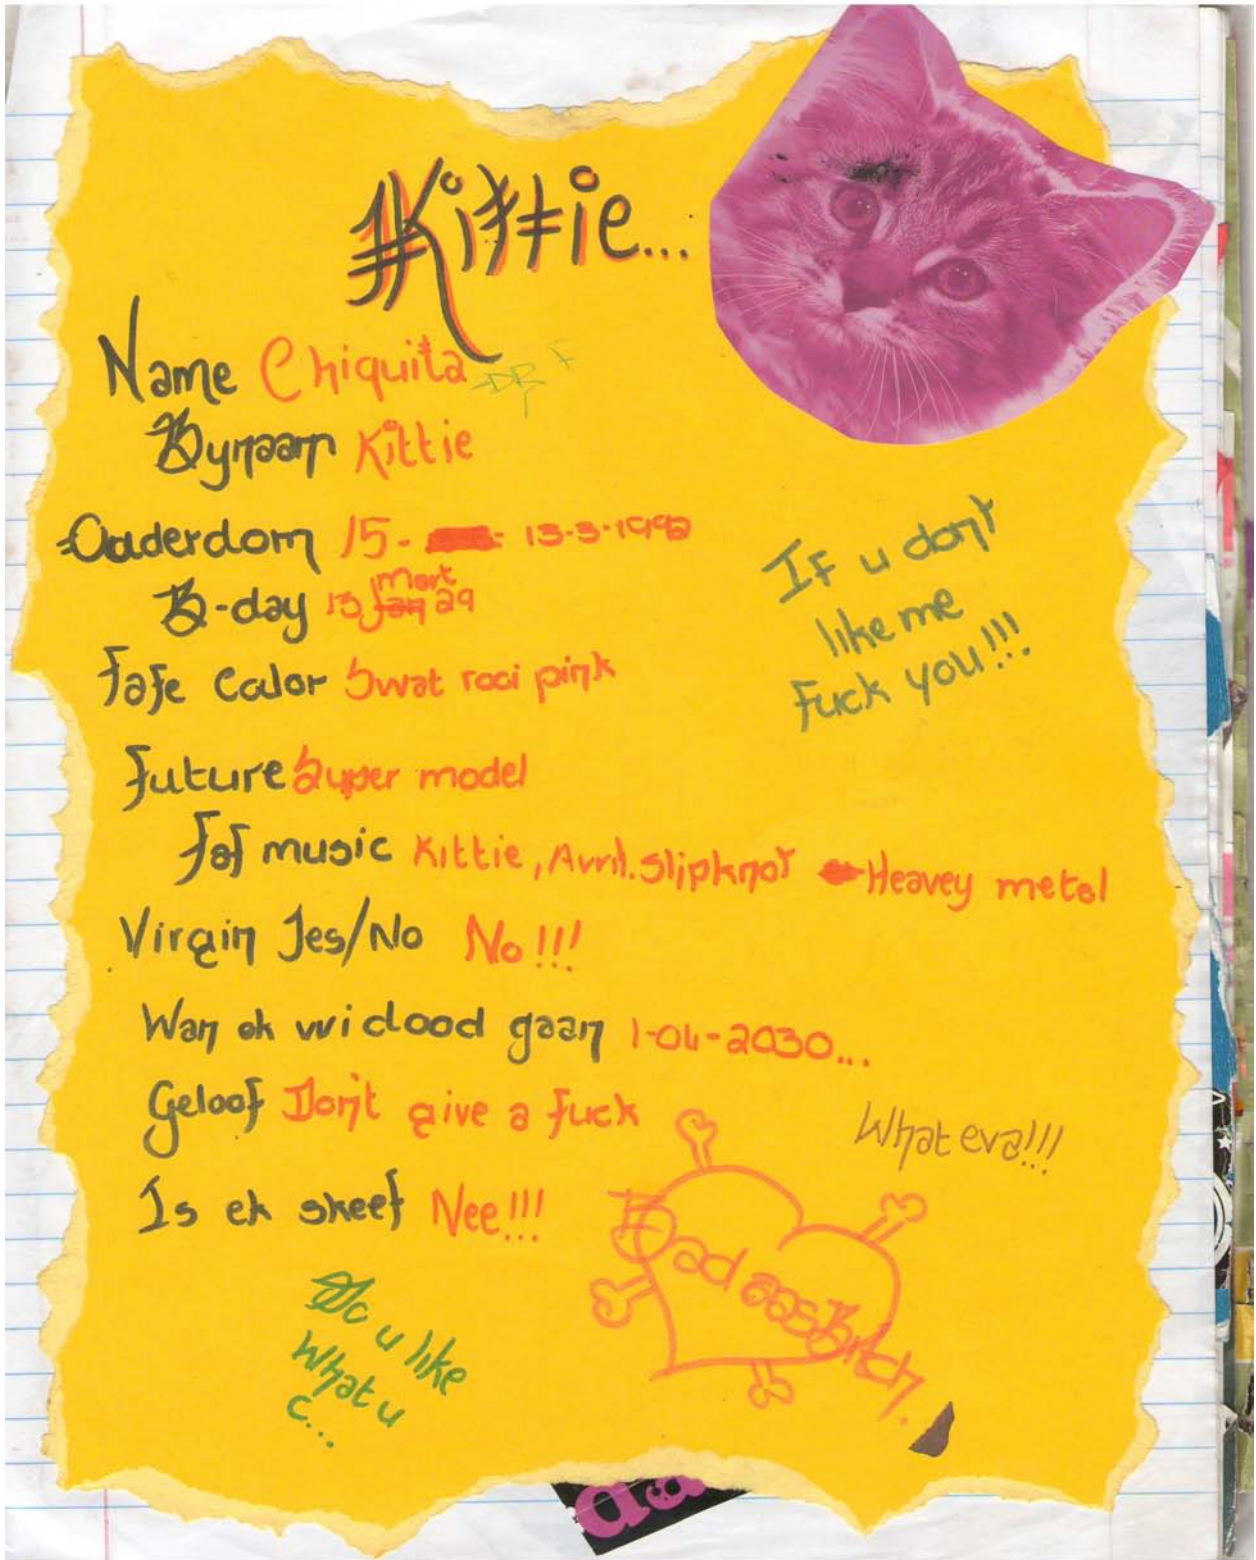 Kittie...
Name Chiquita
Bynaam Kittie
Ouderdom 15 - 13-3-1992
B-day 13 Jan Mart 29
fafe Color Swat rooi pink
If u don't
like me
Fuck you!!!
Future Super model
faf music Kittie, Avril. Slipknot Heavey metal
Virgin Jes/No No!!!
Wan ek wi dood gaan 1-04-2030...
Geloof Don't give a fuck
What eva!!!
Is ek skeef Nee!!!
Bad ass Bitch.
Do u like
What u
C...